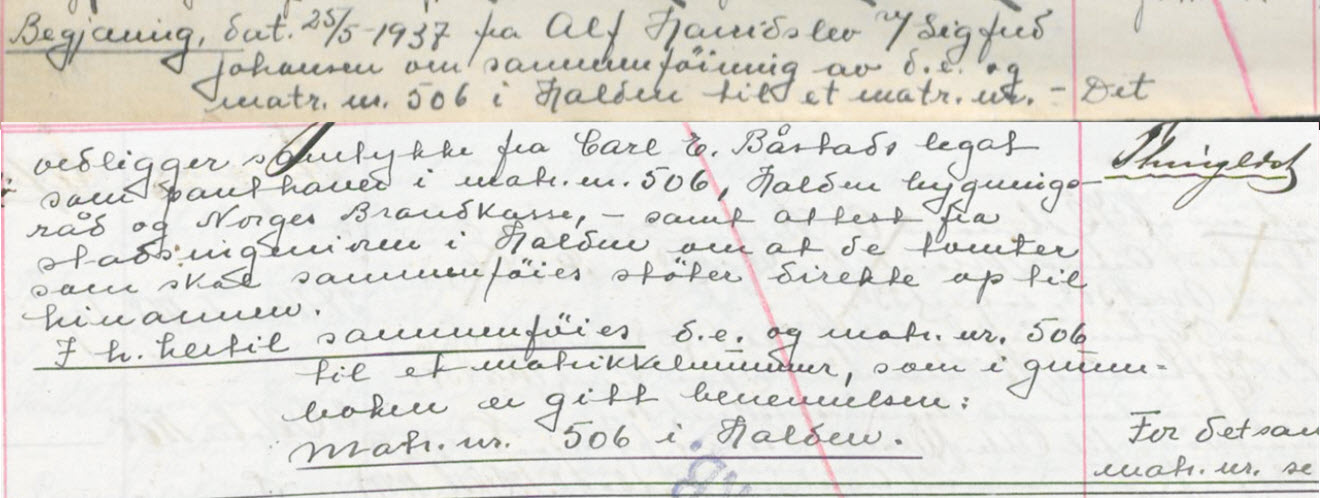 Begjæring, dat. 25/5-1937 fra Alf Hauidslev v/ Sigfred
Johansen om sammenføining av d.e. og
matr. nr. 506 i Halden til et matr. nr. - Det
vedligger samtykke fra Carl E. Båstads legat
som panthaver i matr. nr. 506, Halden bygnings-
råd og Norges Brandkasse, - samt attest fra
stadsingeniøren i Halden om at de tomter
som skal sammenføies støter direkte op til
hinannen.
I h. hertil sammenføies d.e. og matr. nr. 506
til et matrikkelnummer, som i grunn-
boken er gitt benevnelsen:
Matr. nr. 506 i Halden.
Tinglest
For det sam
matr. nr. se